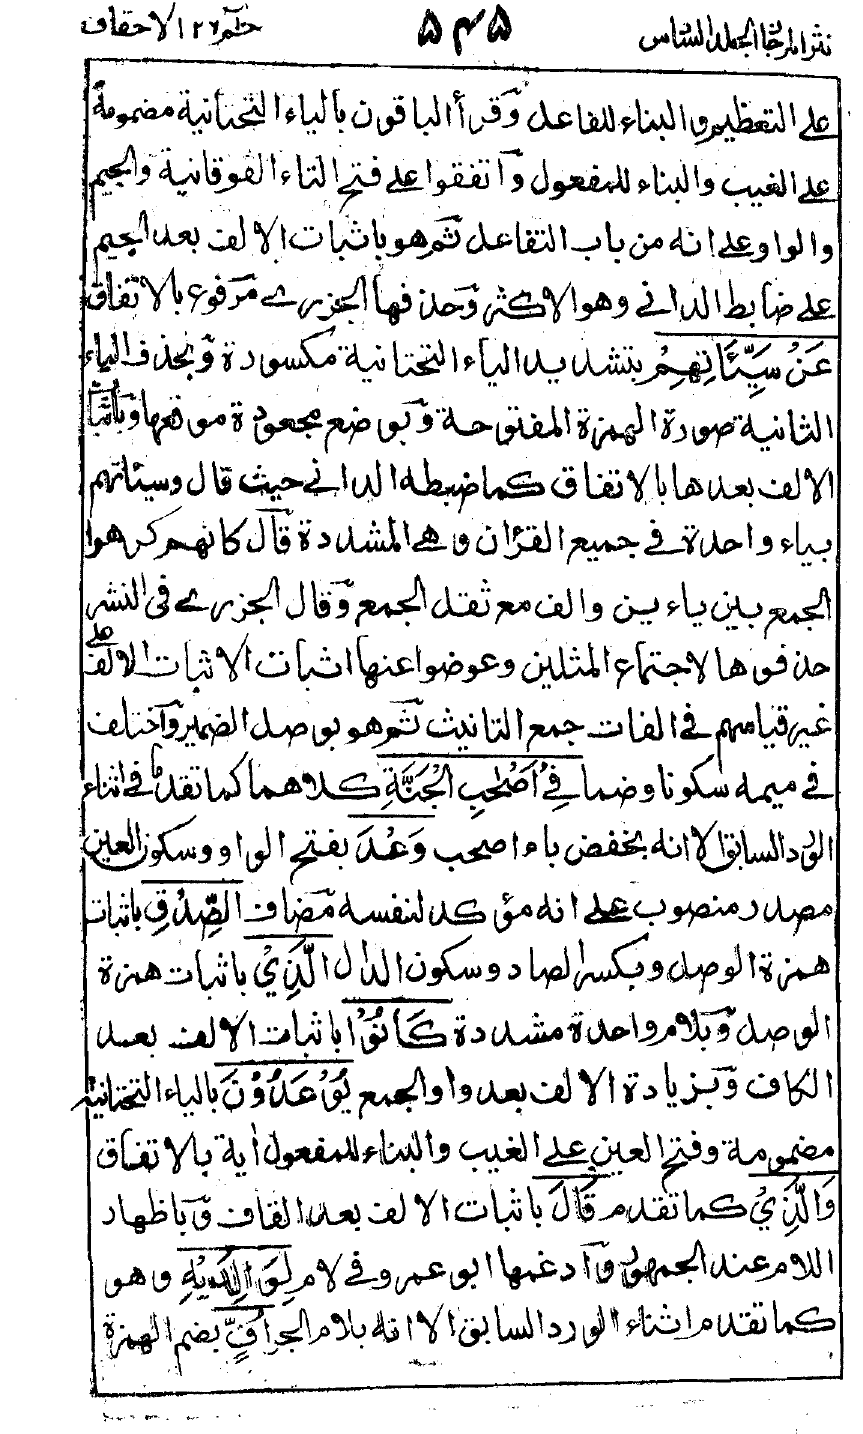 نثر المرجان المجلد السادس ۵۴۵ حٰم ٢٦ الاحقاف
على التعظيم والبناء للفاعل وقرأ الباقون بالياء التحتانية مضمومة
على الغيب والبناء للمفعول واتفقوا على فتح التاء الفوقانية والجيم
والواو وعلى انه من باب التفاعل ثم هو باثبات الالف بعد الجيم
على ضابط الداني وهو الاكثر وحذفها الجزري مرفوع بالاتفاق
عَنْ سَيِّئَاتِهِمْ بتشديد الياء التحتانية مكسورة وبحذف الياء
الثانية صورة الهمزة المفتوحة وبوضع مجعودة موقعها وباثبات
الالف بعدها بالاتفاق كما ضبطه الداني حيث قال وسيئاتهم
بياء واحدة في جميع القرآن وهي المشددة قال كانهم كرهوا
الجمع بين ياءين والف مع ثقل الجمع وقال الجزري في النشر
حذفوها لاجتماع المثلين وعوضوا عنها اثبات الاثبات الالف على
غير قياسهم في الفات جمع التانيث ثم هو بوصل الضمير واختلف
في ميمه سكونا وضما فِيْ اَصْحٰبِ الْجَنَّةِ كلاهما كما تقدما في اثناء
الورد السابق الا انه بخفض باء اصحب وَعْدَ بفتح الواو وسكون العين
مصدر منصوب على انه مؤكد لنفسه مضاف الصِّدْقِ باثبات
همزة الوصل وبكسر الصاد وسكون الدال الَّذِيْ باثبات همزة
الوصل وبلام واحدة مشددة كَانُوْا باثبات الالف بعد
الكاف وبزيادة الالف بعد واو الجمع يُوْعَدُوْنَ بالياء التحتانية
مضمومة وفتح العين على الغيب والبناء للمفعول اية بالاتفاق
وَالَّذِيْ كما تقدم قَالَ باثبات الالف بعد القاف وباظهار
اللام عند الجمهور وادغمها ابو عمرو في لام لِوَالِدَيْهِ وهو
كما تقدم اثناء الورد السابق الا انه بلام الجر اُفٍّ بضم الهمزة